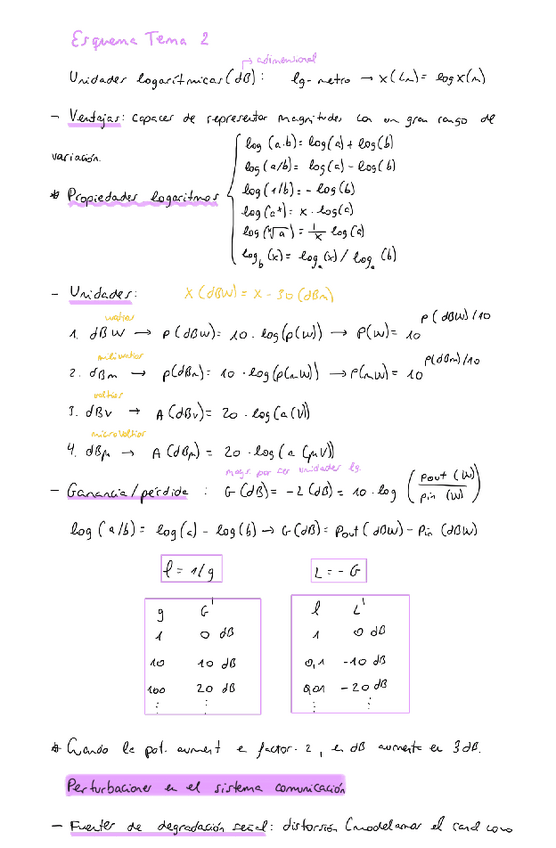 Esquema Tema 2
adimensional
Unidades logarítmicas (dB): lg-metro → X(Lm) = log X(m)
- Ventajas: capaces de representar magnitudes con un gran rango de
variación.
log (a·b) = log(a) + log(b)
log (a/b) = log(a) - log(b)
* Propiedades logaritmos
log (1/b) = - log(b)
log (aˣ) = x · log(a)
log (ˣ√a) = 1/x log(a)
log_b (x) = log_a (x) / log_a (b)
- Unidades: X (dBW) = X - 30 (dBm)
watios
1. dBW → P(dBW) = 10 · log(p(W)) → P(W) = 10^P(dBW)/10
miliwatios
2. dBm → p(dBm) = 10 · log(p(mW)) → P(mW) = 10^P(dBm)/10
voltios
3. dBv → A (dBv) = 20 · log(a(V))
microvoltios
4. dBμ → A (dBμ) = 20 · log(a (μV))
mays. por ser unidades lg.
- Ganancia/pérdida : G (dB) = -L (dB) = 10 · log (pout (W) / pin (W))
log (a/b) = log(a) - log(b) → G(dB) = Pout (dBW) - Pin (dBW)
l = 1/g L = - G
g G l L
1 0 dB 1 0 dB
10 10 dB 0,1 -10 dB
100 20 dB 0,01 -20 dB
⋮ ⋮ ⋮ ⋮
* Cuando la pot. aument e factor. 2, en dB aumenta en 3 dB.
Perturbaciones en el sistema comunicación
- Fuentes de degradación señal: distorsión (modelamar el canal como